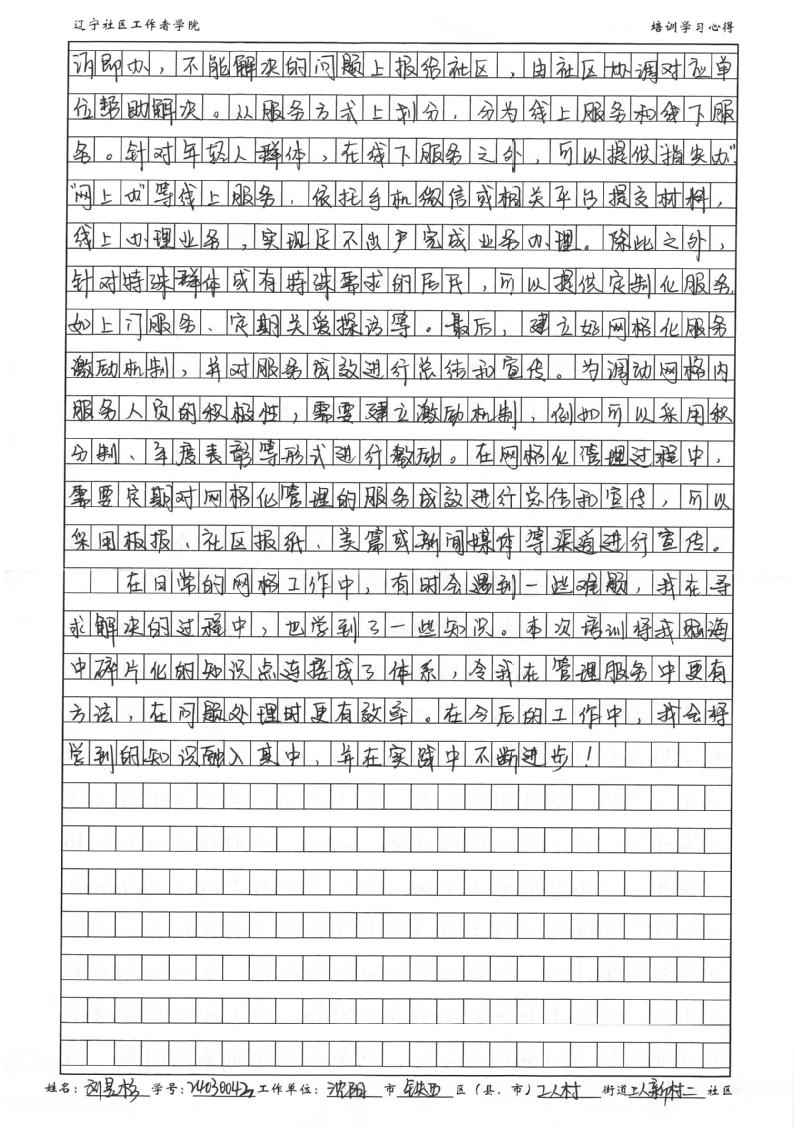 辽宁社区工作者学院 培训学习心得
诉即办，不能解决的问题上报给社区，由社区协调对应单
位帮助解决。从服务方式上划分，分为线上服务和线下服
务。针对年轻人群体，在线下服务之外，可以提供“指尖办”
“网上办”等线上服务，依托手机微信或相关平台提交材料，
线上办理业务，实现足不出户完成业务办理。除此之外，
针对特殊群体或有特殊需求的居民，可以提供定制化服务，
如上门服务、定期关爱探访等。最后，建立好网格化服务
激励机制，并对服务成效进行总结和宣传。为调动网格内
服务人员的积极性，需要建立激励机制，例如可以采用积
分制、年度表彰等形式进行激励。在网格化管理过程中，
需要定期对网格化管理的服务成效进行总结和宣传，可以
采用板报、社区报纸、美篇或新闻媒体等渠道进行宣传。
在日常的网格工作中，有时会遇到一些难题，我在寻
求解决的过程中，也学到了一些知识。本次培训将我脑海
中碎片化的知识点连接成了体系，令我在管理服务中更有
方法，在问题处理时更有效率。在今后的工作中，我会将
学到的知识融入其中，并在实践中不断进步！
姓名： 学号：工作单位：沈阳 市 铁西 区（县、市）工人村 街道 工人新村二 社区